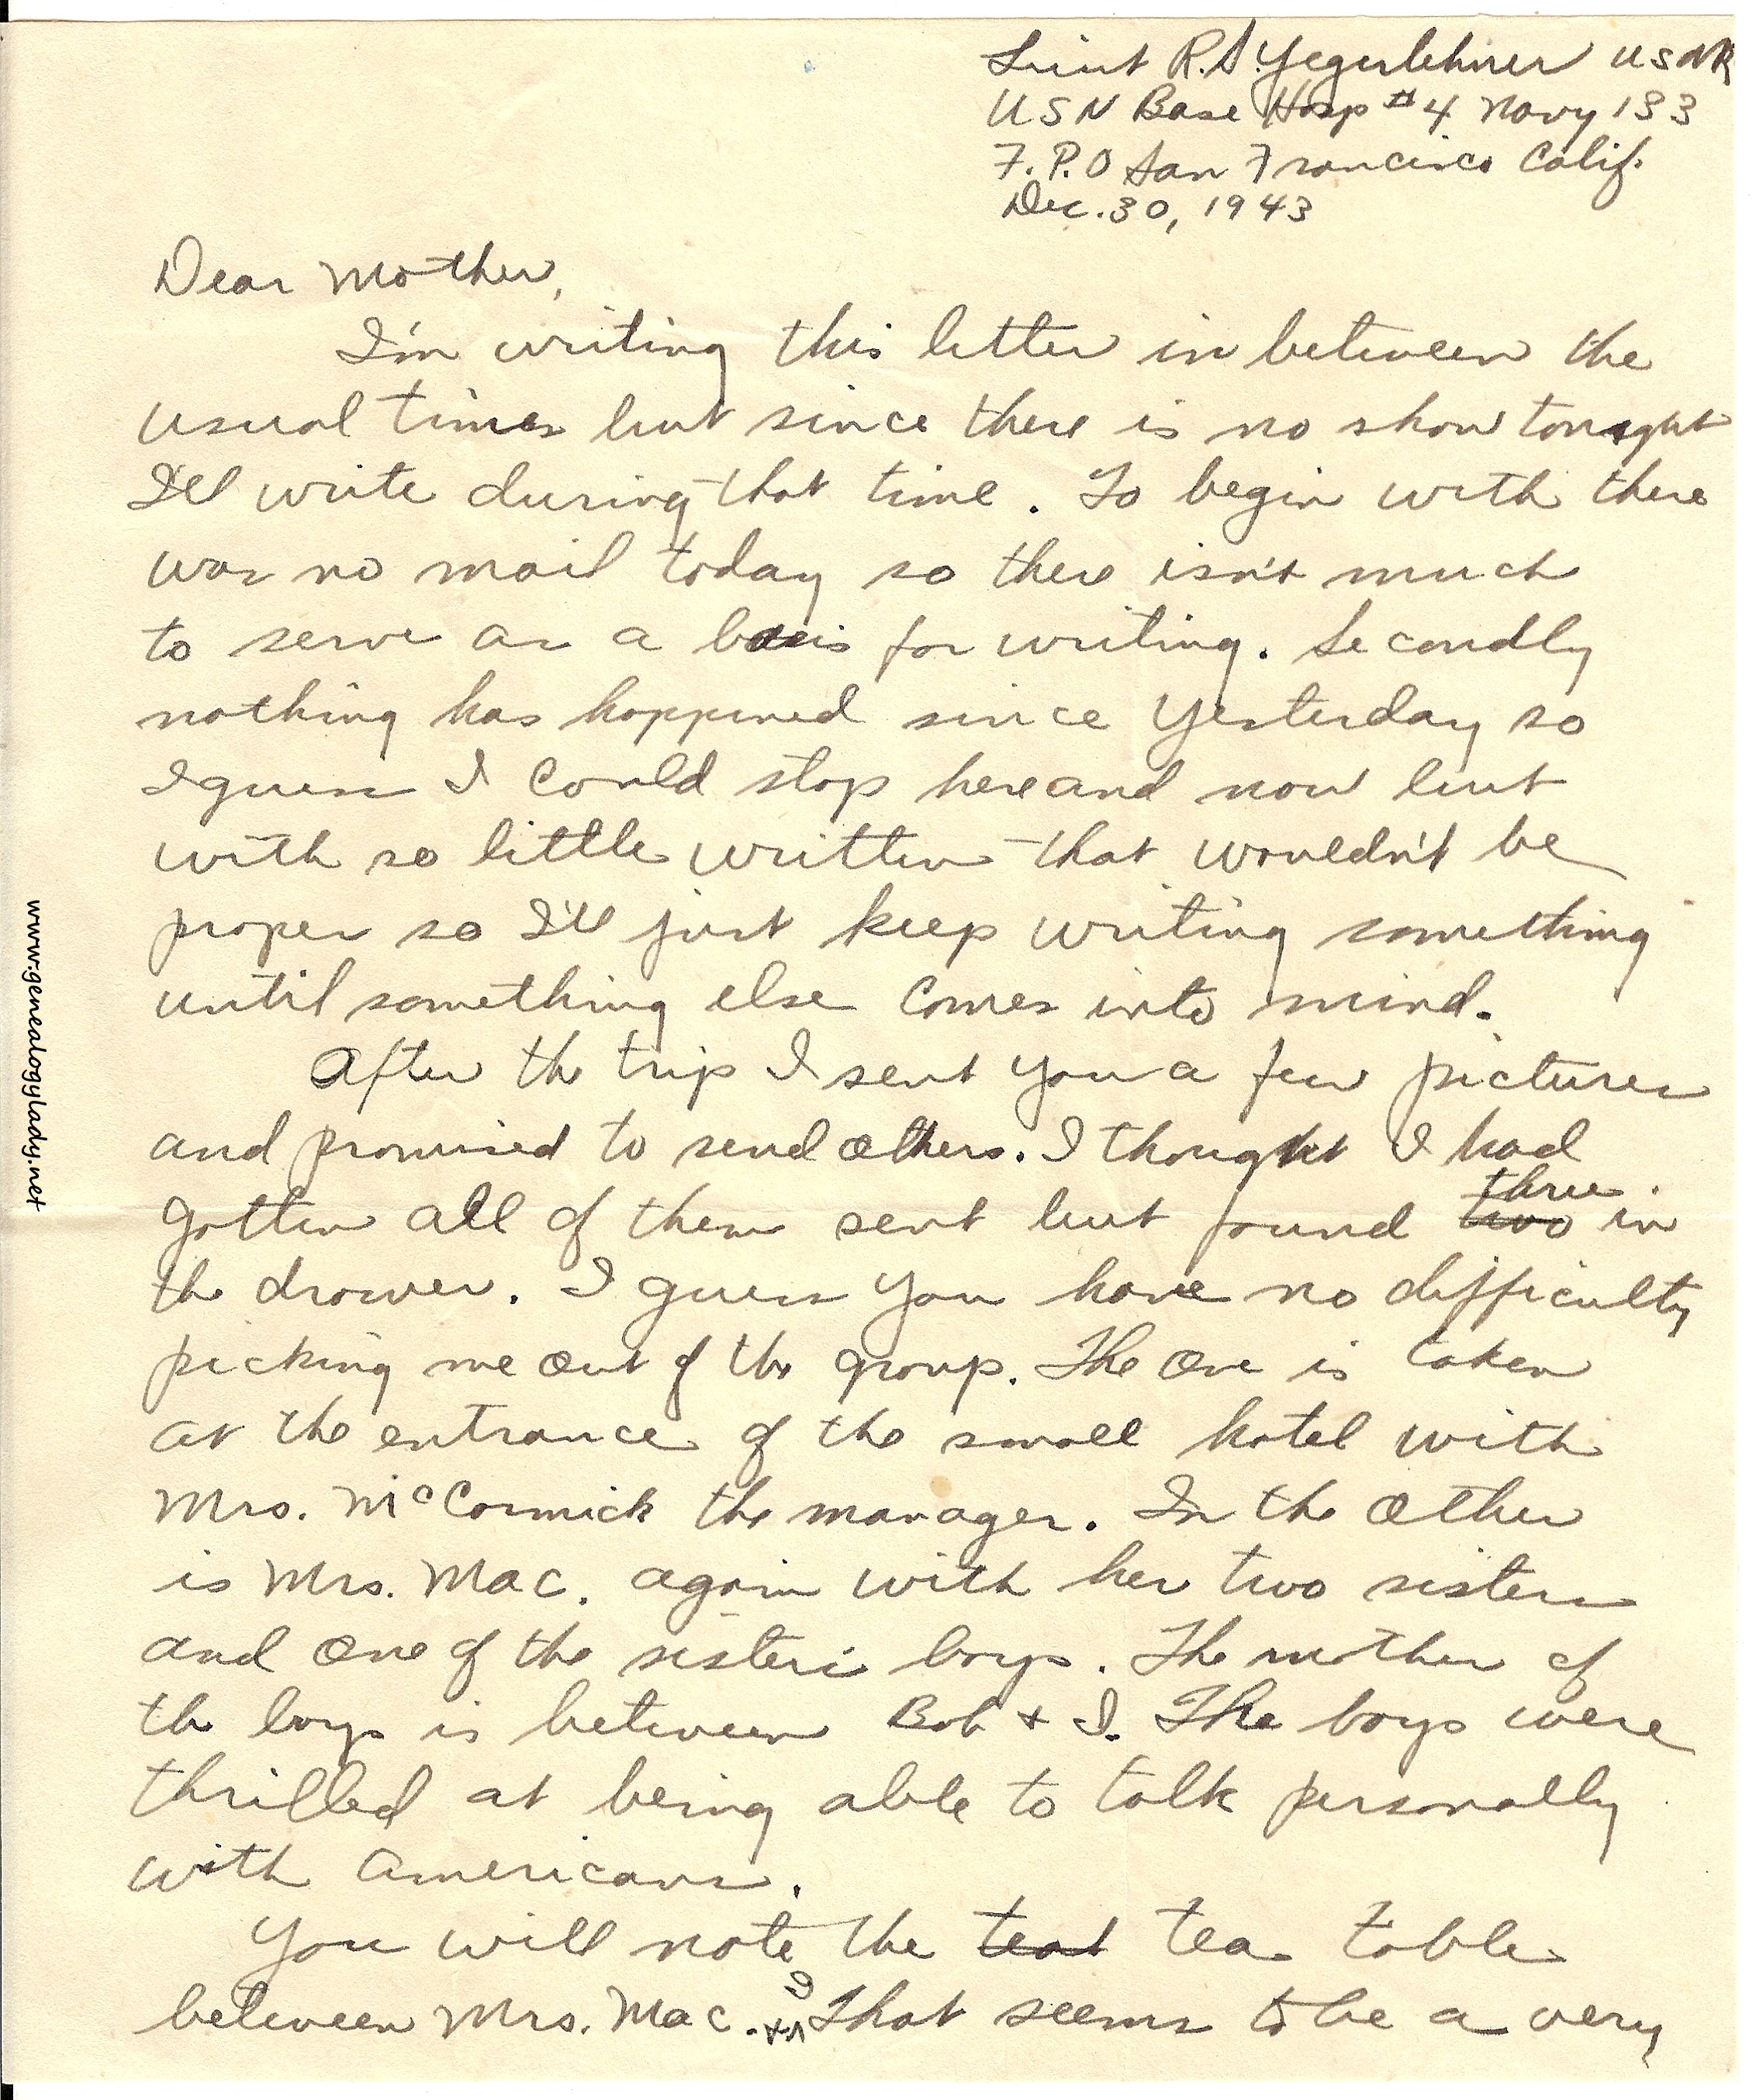 Lieut R.S. Yegerlehner USNR
USN Base Hosp #4 Navy 133
F.P.O San Francisco Calif.
Dec. 30, 1943
Dear Mother,
I'm writing this letter in between the
usual times but since there is no show tonight
I'll write during that time. To begin with there
was no mail today so there isn't much
to serve as a basis for writing. Secondly
nothing has happened since yesterday so
I guess I could stop here and now but
with so little written that wouldn't be
proper so I'll just keep writing something
until something else comes into mind.
After the trip I sent you a few pictures
and promised to send others. I thought I had
gotten all of them sent but found two three in
the drawer. I guess you have no difficulty
picking me out of the group. The one is taken
at the entrance of the small hotel with
Mrs. McCormick the manager. In the other
is Mrs. Mac. again with her two sisters
and one of the sisters boys. The mother of
the boys is between Bob + I. The boys were
thrilled at being able to talk personally
with Americans.
You will note the teat tea table
between Mrs. Mac. + I That seems to be a very
www.genealogylady.net